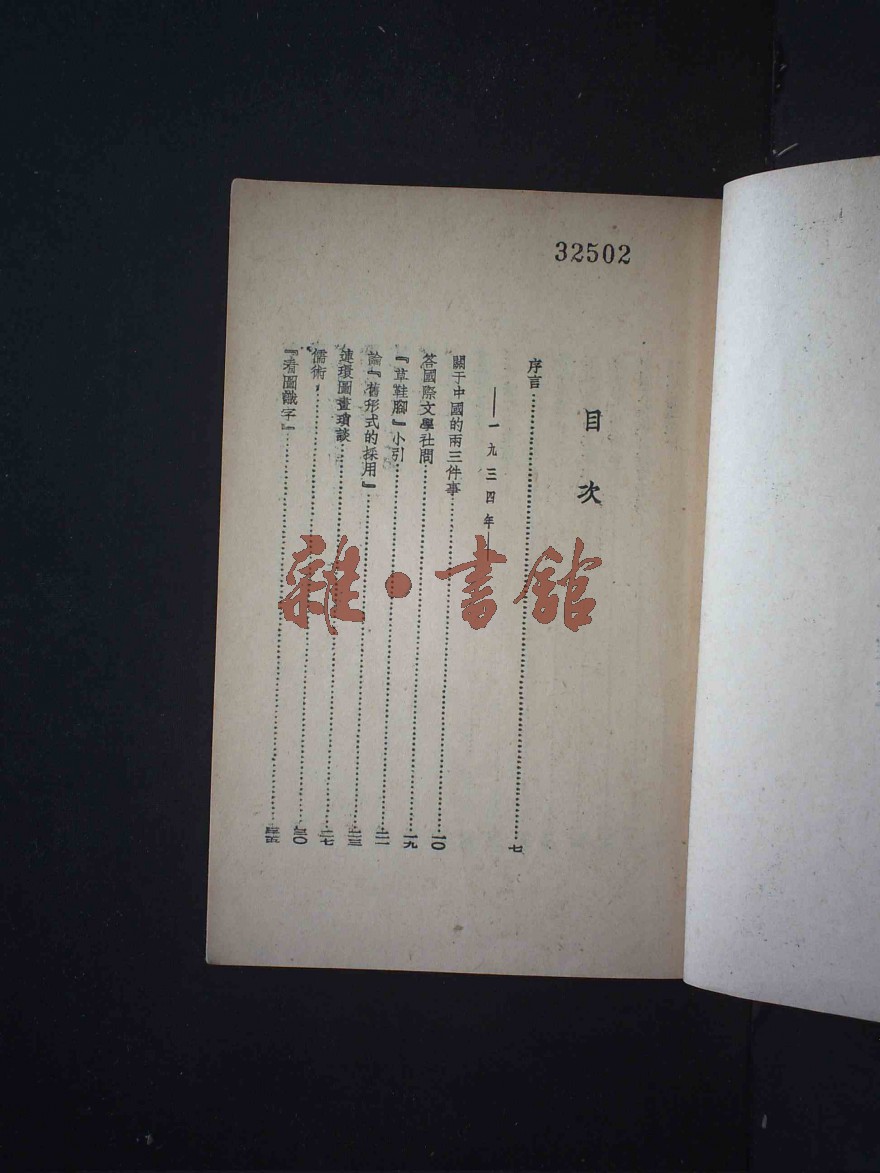 32502
目次
序言……七
——一九三四年——
關于中國的兩三件事……一〇
答國際文學社問……一九
『草鞋腳』小引……二一
論『舊形式的採用』……二三
連環圖畫瑣談……二七
儒術……三〇
『看圖識字』……三五
雜·書館